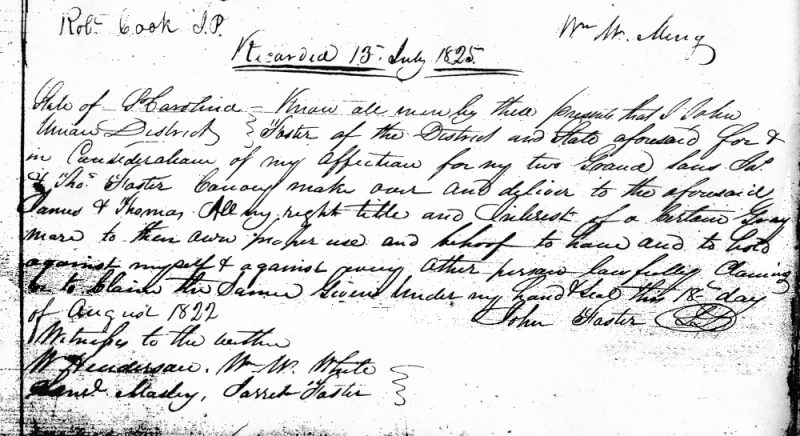 Robt. Cook J.P. Wm W. Ming
Recorded 13th July 1825.
State of So Carolina Know all men by these presents that I John
Union District Foster of the District and State aforesaid for &
in Consideration of my affection for my two Grand sons Jas.
& Thos. Foster Convey make over and deliver to the aforesaid
James & Thomas All my right title and Interest of a Certain Gray
mare to their own proper use and behoof to have and to hold
against myself & against every Other person lawfully Claiming
or to Claim the Same Given Under my hand & Seal this 18th day
of August 1822 John Foster LS
Witness to the within
W Henderson, Wm W. White
Mosley, Jarret Foster